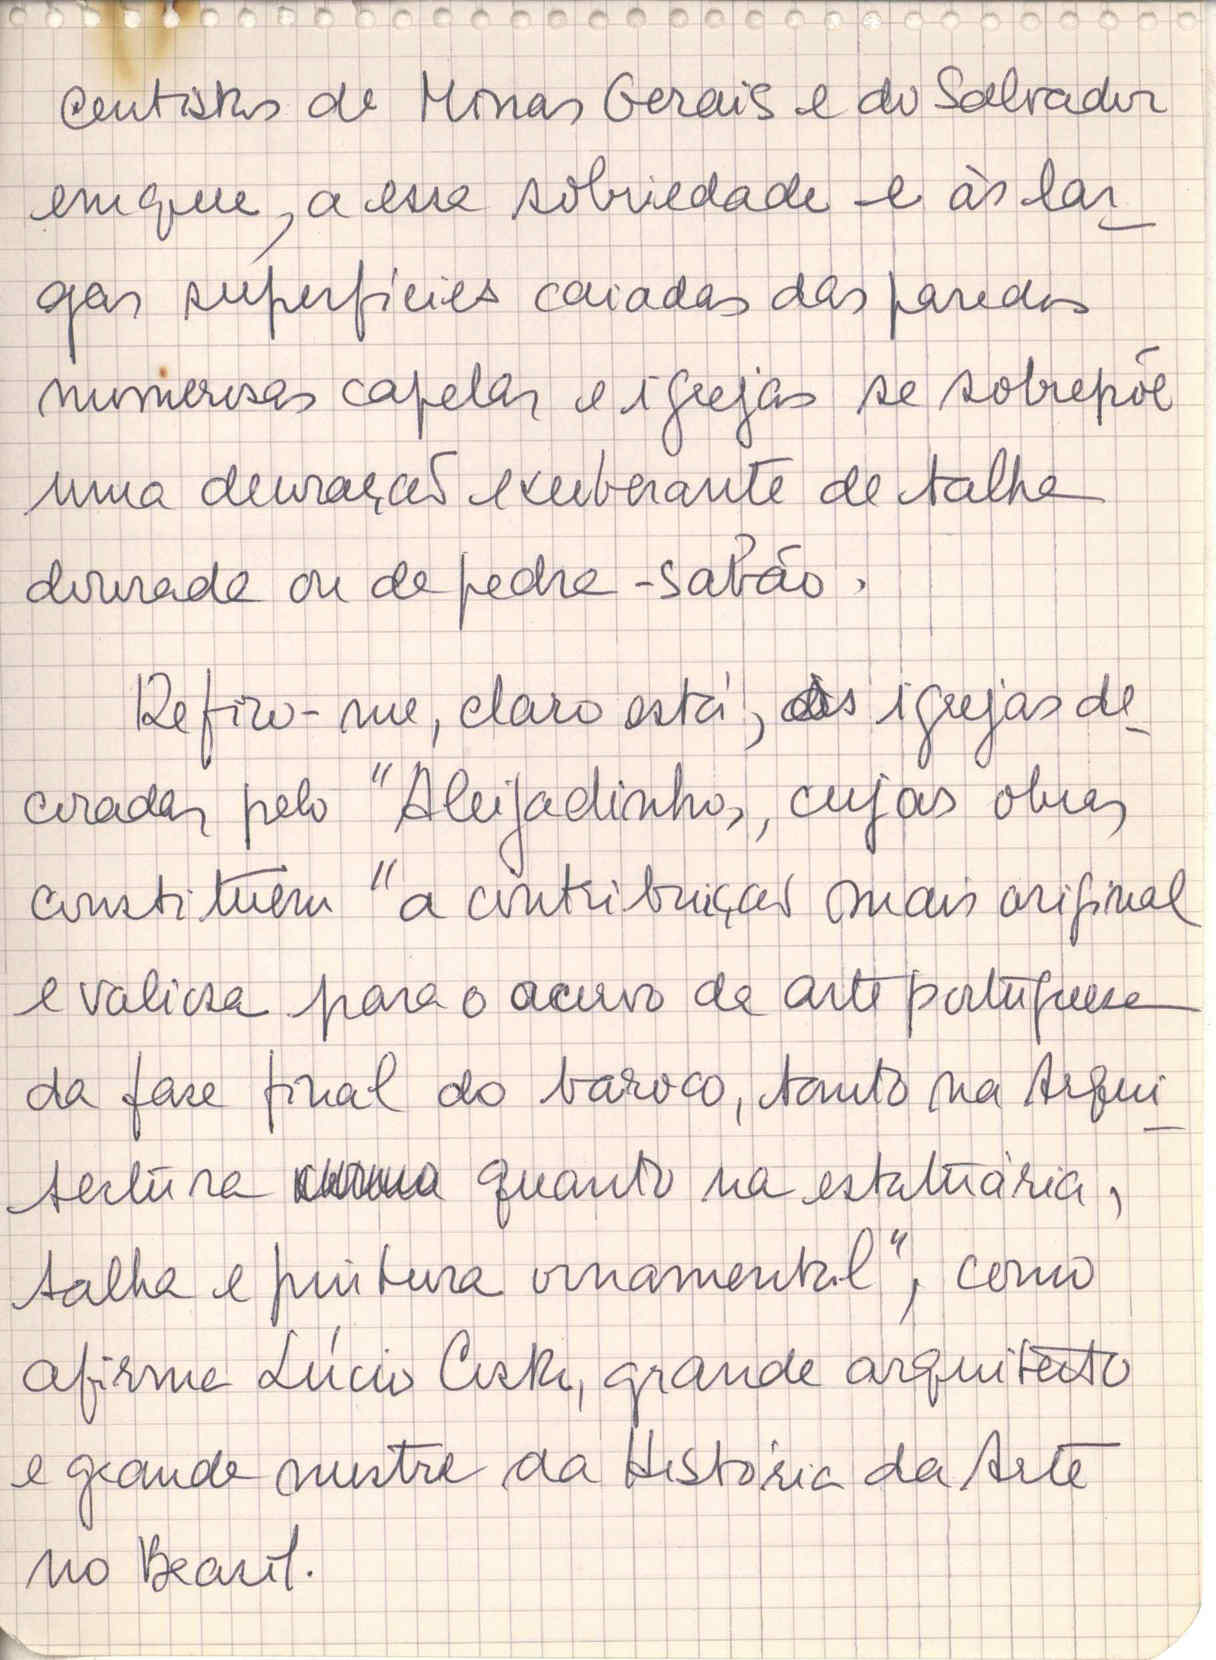 centistas de Minas Gerais e do Salvador
em que, a essa sobriedade e às lar-
gas superfícies caiadas das paredes
numerosas capelas e igrejas se sobrepõe
uma decoração exuberante de talha
dourada ou de pedra-sabão.
Refiro-me, claro está, às igrejas de-
coradas pelo "Aleijadinho", cujas obras
constituem "a contribuição mais original
e valiosa para o acervo da arte portuguesa
da fase final do baroco, tanto na Arqui-
tectura quanto na estatuária,
talha e pintura ornamental", como
afirma Lúcio Costa, grande arquitecto
e grande mestre da História da Arte
no Brasil.